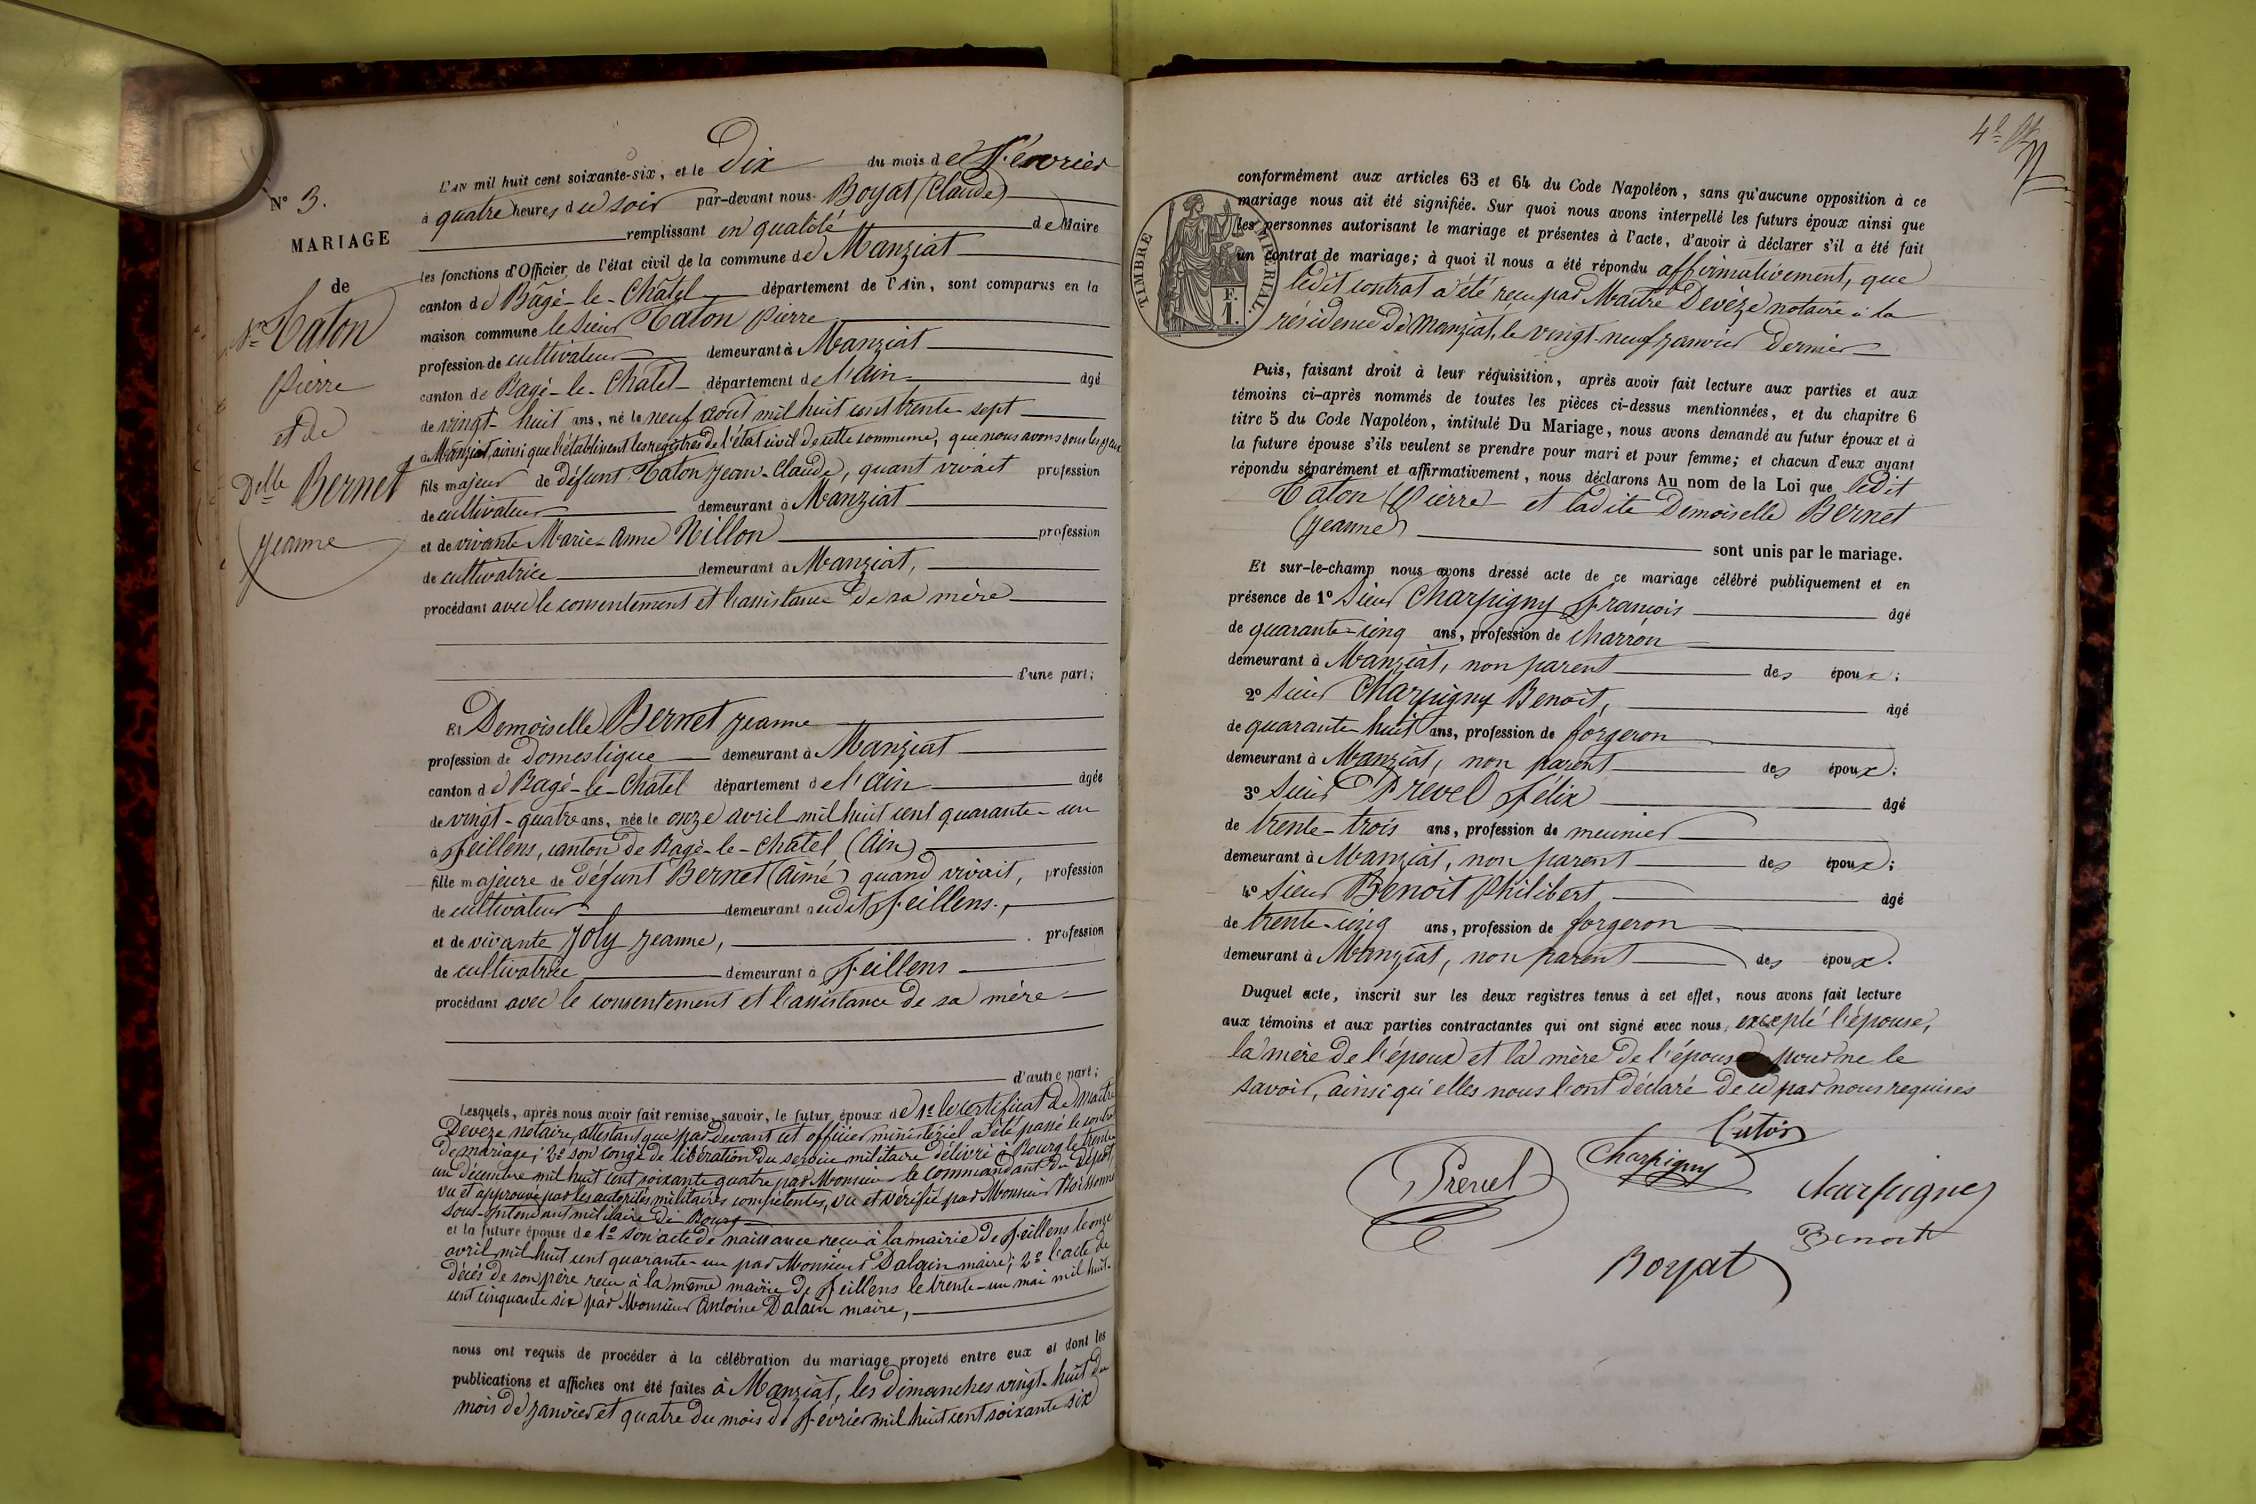 N° 3.
MARIAGE
de
Sr Caton
Pierre
et de
Delle Bernet
Jeanne
L'AN mil huit cent soixante-six, et le Dix du mois de Février
à quatre heures du soir par-devant nous Boyat (Claude)
remplissant en qualité de Maire
les fonctions d'Officier de l'état civil de la commune de Manziat
canton de Bâgé-le-Châtel département de l'Ain, sont comparus en la
maison commune le Sieur Caton Pierre
profession de cultivateur demeurant à Manziat
canton de Bagé-le-Chatel département de l'Ain âgé
de vingt-huit ans, né le neuf août mil huit cent trente sept
à Manziat, ainsi que l'établissent les registres de l'état civil de cette commune, que nous avons sous les yeux
fils majeur de défunt Caton Jean-Claude, quant vivait profession
de cultivateur demeurant à Manziat
et de vivante Marie-Anne Nillon profession
de cultivatrice demeurant à Manziat,
procédant avec le consentement et l'assistance de sa mère
d'une part;
Et Demoiselle Bernet Jeanne
profession de domestique demeurant à Manziat
canton de Bagé-le-Châtel département de l'Ain âgée
de vingt-quatre ans, née le onze avril mil huit cent quarante-un
à Feillens, canton de Bagé-le-Chatel (Ain)
fille majeure de défunt Bernet (Aimé) quand vivait, profession
de cultivateur demeurant audit Feillens,
et de vivante Joly Jeanne, profession
de cultivatrice demeurant à Feillens
procédant avec le consentement et l'assistance de sa mère
d'autre part;
Lesquels, après nous avoir fait remise, savoir, le futur époux de 1° le certificat de Maitre
Deveze notaire, attestant que par devant cet officier ministériel a été passé le contrat
de mariage; 2° son congé de libération du service militaire délivré à Bourg le trente
un décembre mil huit cent soixante quatre par Monsieur le Commandant du dépot,
vu et approuvé par les autorités militaires compétentes, vu et vérifié par Monsieur
Sous-Intendant militaire de Bourg
et la future épouse de 1° son acte de naissance reçu à la mairie de Feillens le onze
avril mil huit cent quarante-un par Monsieur Dalain maire; 2° l'acte de
décès de son père reçu à la même mairie de Feillens le trente-un mai mil huit
cent cinquante six par Monsieur Antoine Dalain maire,
nous ont requis de procéder à la célébration du mariage projeté entre eux et dont les
publications et affiches ont été faites à Manziat, les dimanches vingt-huit du
mois de Janvier et quatre du mois de Février mil huit cent soixante six
TIMBRE IMPÉRIAL
F.
1.
conformément aux articles 63 et 64 du Code Napoléon, sans qu'aucune opposition à ce
mariage nous ait été signifiée. Sur quoi nous avons interpellé les futurs époux ainsi que
les personnes autorisant le mariage et présentes à l'acte, d'avoir à déclarer s'il a été fait
un contrat de mariage; à quoi il nous a été répondu affirmativement, que
ledit contrat a été reçu par Maitre Devèze notaire à la
résidence de Manziat, le vingt-neuf Janvier dernier
Puis, faisant droit à leur réquisition, après avoir fait lecture aux parties et aux
témoins ci-après nommés de toutes les pièces ci-dessus mentionnées, et du chapitre 6
titre 5 du Code Napoléon, intitulé Du Mariage, nous avons demandé au futur époux et à
la future épouse s'ils veulent se prendre pour mari et pour femme; et chacun d'eux ayant
répondu séparément et affirmativement, nous déclarons Au nom de la Loi que ledit
Caton (Pierre) et ladite Demoiselle Bernet
(Jeanne)
sont unis par le mariage.
Et sur-le-champ nous avons dressé acte de ce mariage célébré publiquement et en
présence de 1° Sieur Charpigny François âgé
de quarante-cinq ans, profession de charron
demeurant à Manziat, non parent des époux;
2° Sieur Charpigny Benoit, âgé
de quarante huit ans, profession de forgeron
demeurant à Manziat, non parent des époux;
3° Sieur Prevel Félix âgé
de trente-trois ans, profession de meunier
demeurant à Manziat, non parent des époux;
4° Sieur Benoit Philibert âgé
de trente-cinq ans, profession de forgeron
demeurant à Manziat, non parent des époux.
Duquel acte, inscrit sur les deux registres tenus à cet effet, nous avons fait lecture
aux témoins et aux parties contractantes qui ont signé avec nous, excepté l'épouse,
la mère de l'époux et la mère de l'épouse pour ne le
savoir, ainsi qu'elles nous l'ont déclaré de ce par nous requises
Caton
Prevel
Charpigny
Charpigny
Benoit
Boyat